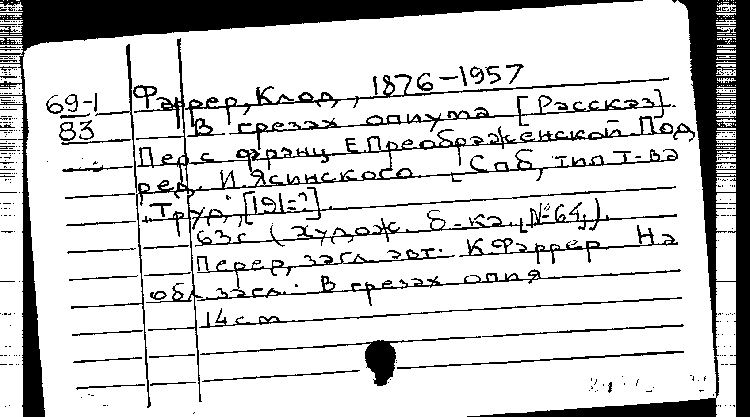 69-1
83
Фаррер, Клод, 1876-1957
В грезах опиума [Рассказ].
Пер. с франц. Е. Преображенской Под
ред. И. Ясинского [Спб, тип. Т-ва
"Труд", [191-?].
63 с (Худож. б-ка. [№ 64]).
Перер, загл. авт: К. Фаррер На
обл загл.: В грезах опия
14 см